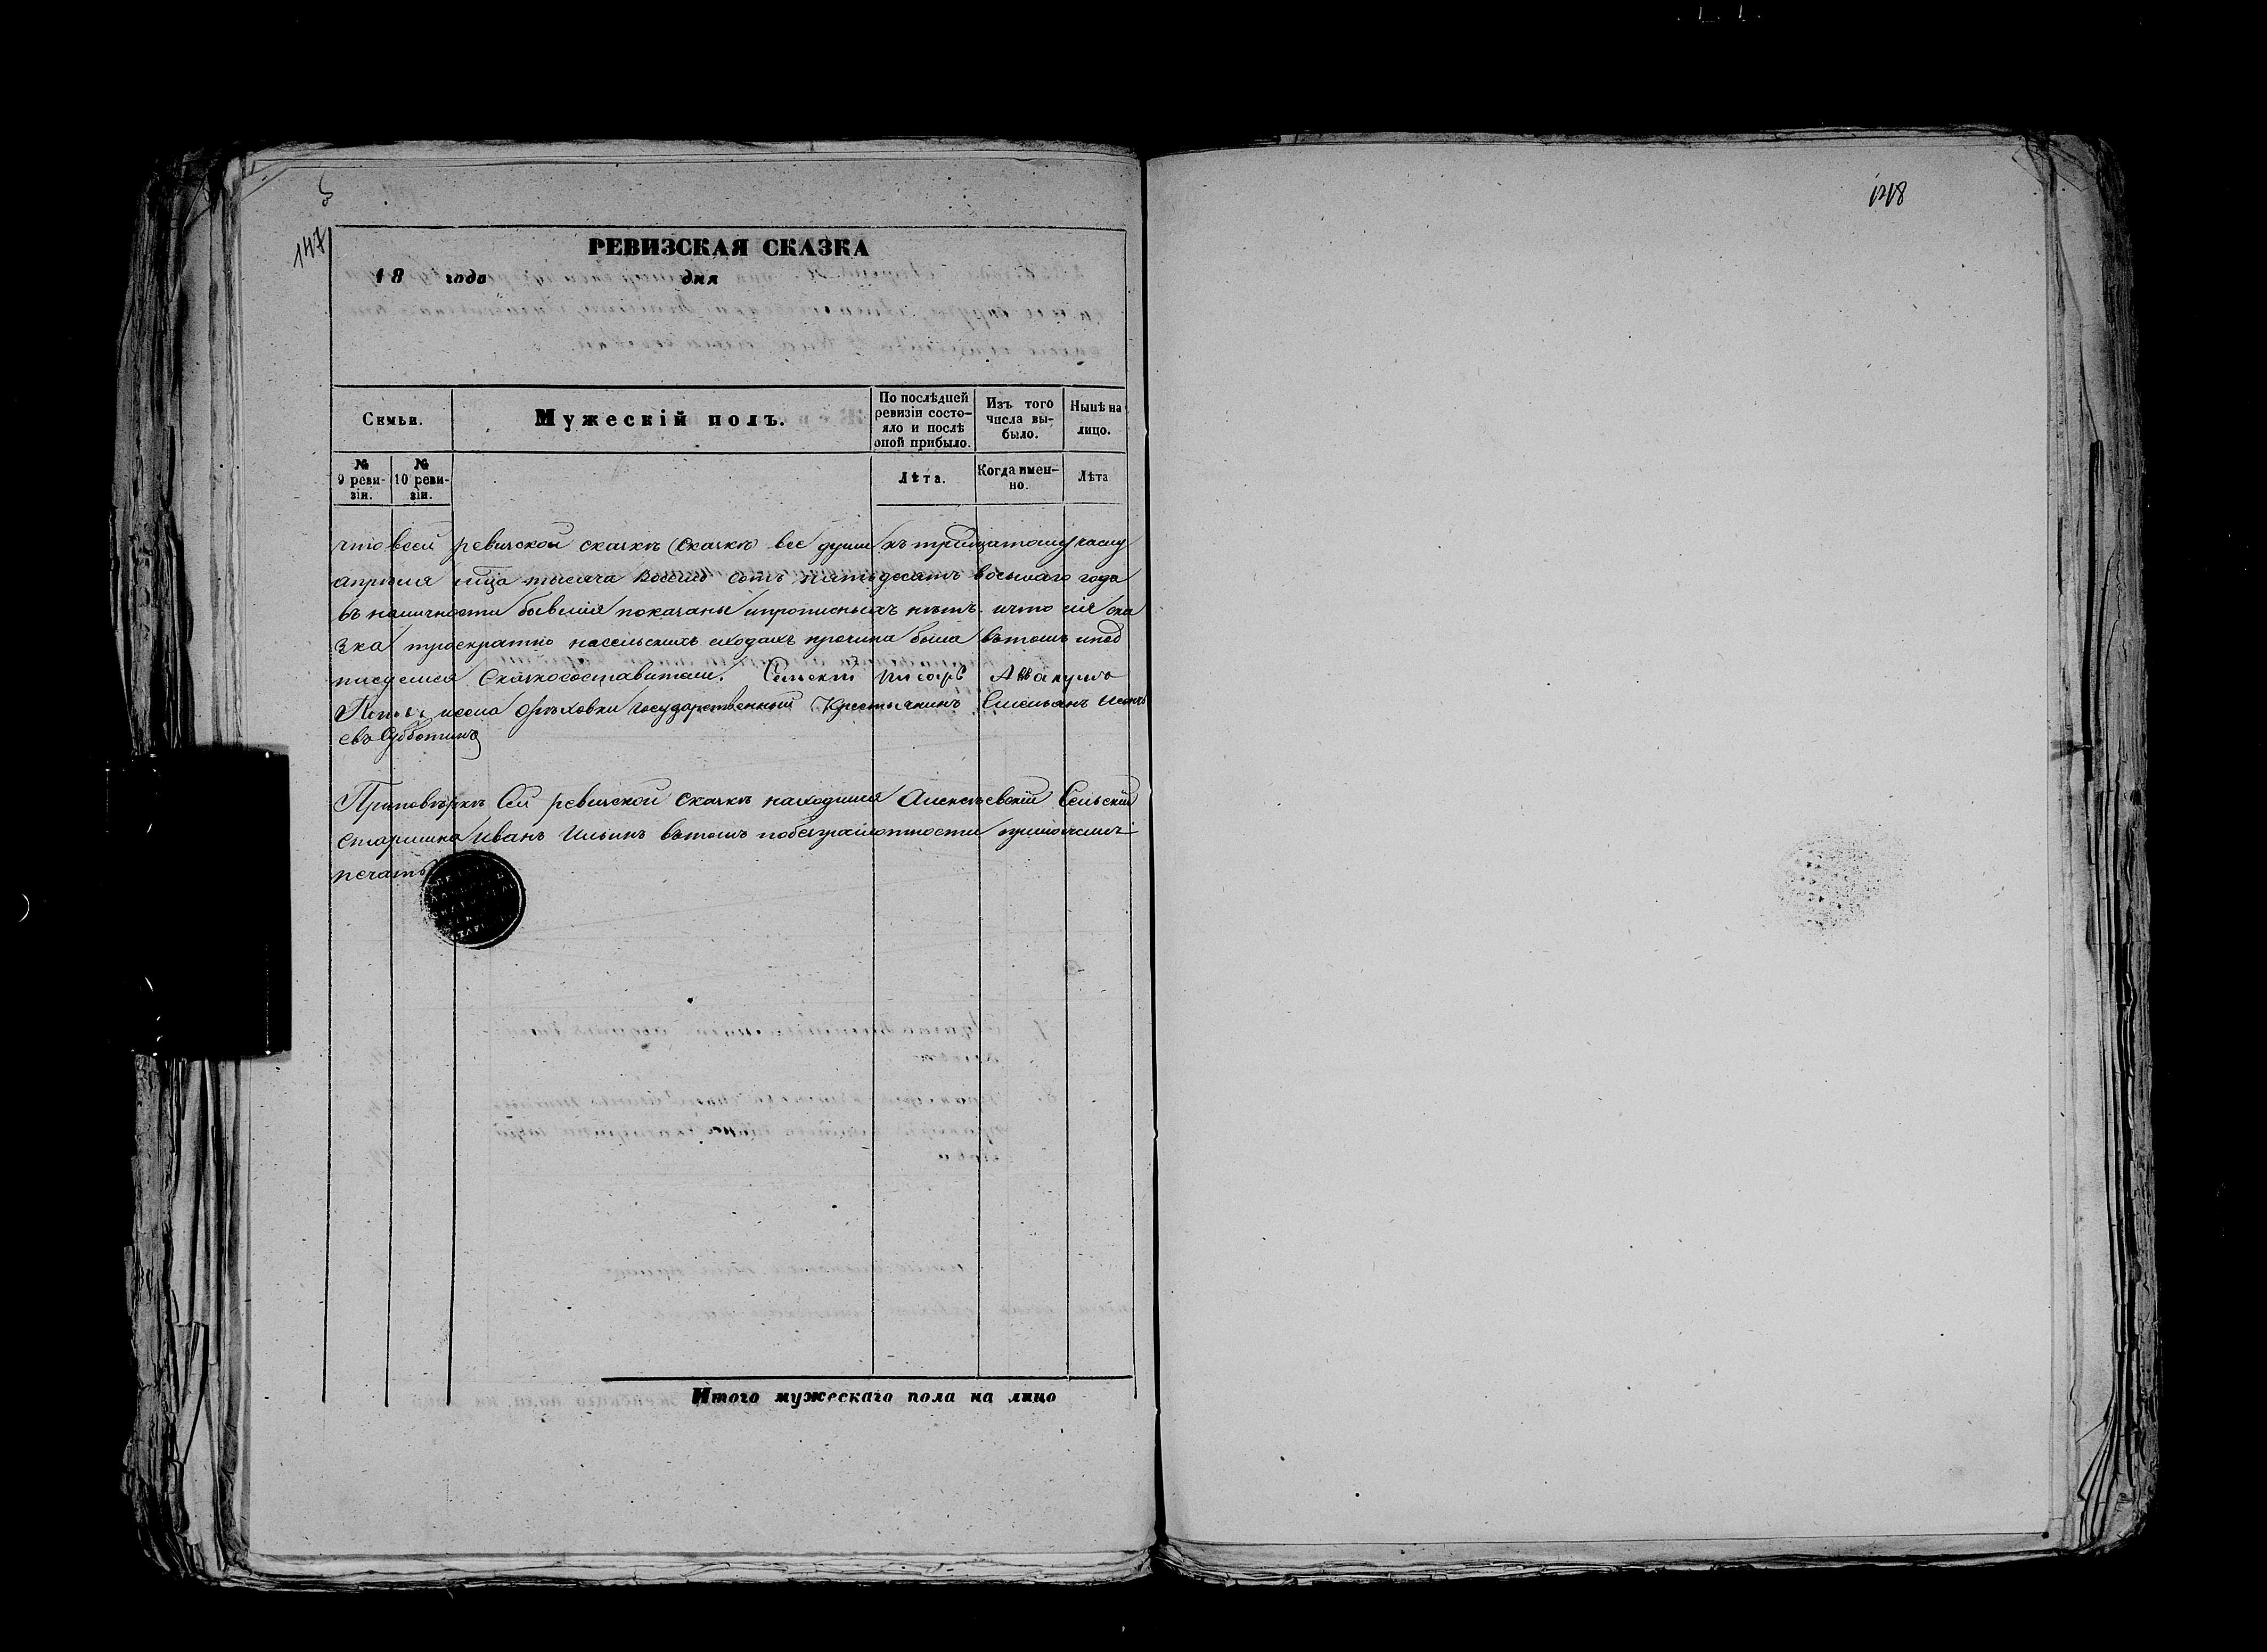 147
РЕВИЗСКАЯ СКАЗКА
18 года дня
Семьи.
Мужескій полъ.
По послѣдней ревизіи состо-
яло и послѣ оной прибыло.
Изъ того числа вы-
было.
Нынѣ на лицо.
№ 9 реви-
зіи.
№ 10 реви-
зіи.
Лѣта.
Когда имен-
но.
Лѣта
что всей ревизской сказкѣ (сказкѣ) все души къ тридцатому часлу
апрѣля мца тысяча восемь сотъ пятьдесятъ восьмаго года
въ наличности бывшія показаны ипрописныхъ нѣтъ. ичто сія ска
зка троекратно насельскихъ сходахъ прочина была вътомъ ипод
писуемся Сказкосоставители. Сельскій писарь Аввакумъ
исело Орѣховки государственный Крестьянинъ Емельянъ
евъ Субботинъ
Приповѣркѣ сей ревизской сказкѣ находился Алексѣевскій Сельскій
старшина Иванъ Ильинъ вътомъ побезграмотности приложилъ
печать
Итого мужескаго пола на лицо